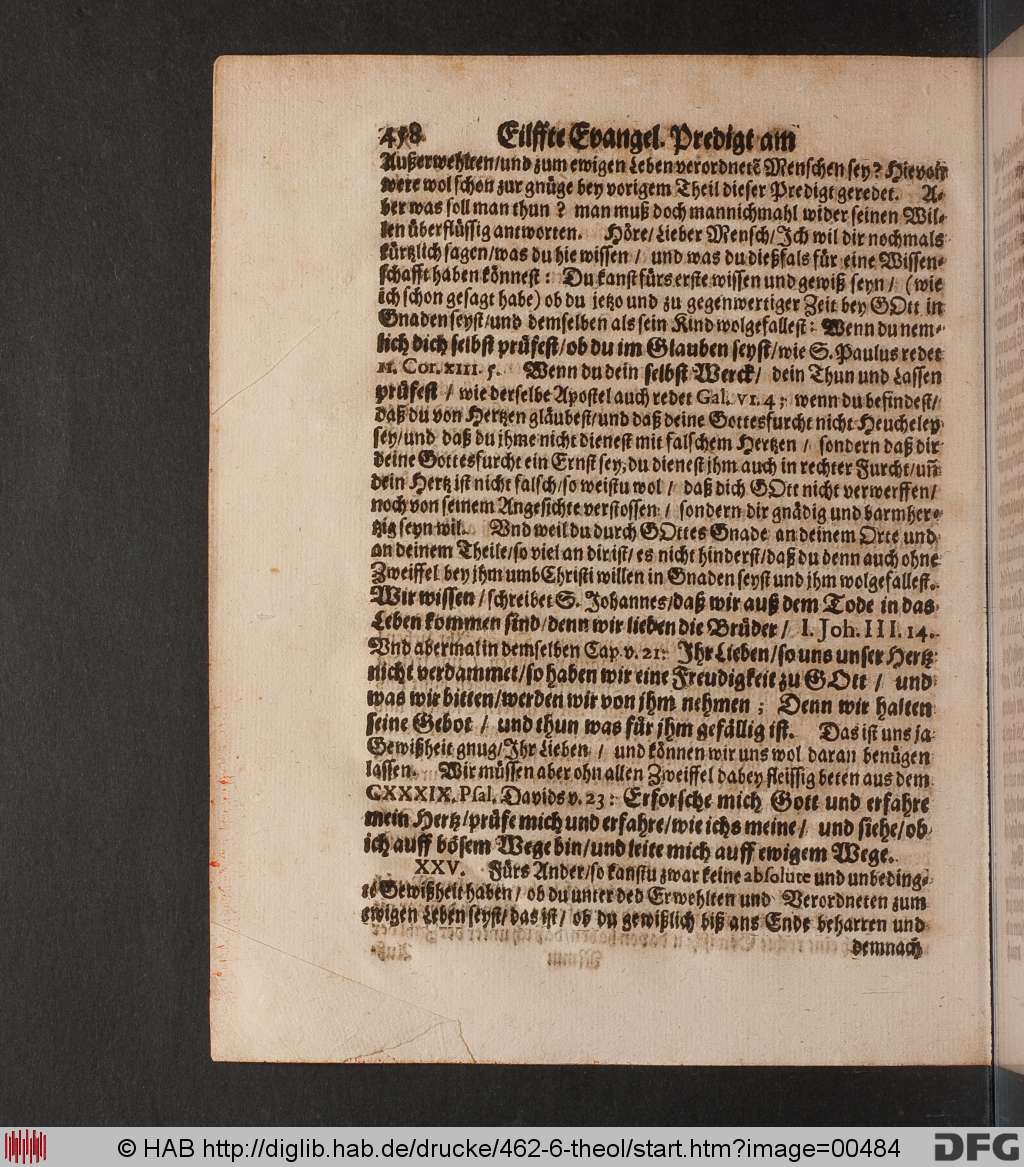 458 Eilffte Evangel. Predigt am
Außerwehlten/und zum ewigen Leben verordnetē Menschen sey? Hievon
were wol schon zur gnüge bey vorigem Theil dieser Predigt geredet. A-
ber was soll man thun? man muß doch mannichmahl wider seinen Wil-
len überflüssig antworten. Höre/Lieber Mensch/Ich wil dir nochmals
kürtzlich sagen/was du hie wissen/ und was du dießfals für eine Wissen-
schafft haben könnest: Du kanst fürs erste wissen und gewiß seyn/ (wie
ich schon gesagt habe) ob du jetzo und zu gegenwertiger Zeit bey GOtt in
Gnaden seyst/und demselben als sein Kind wolgefallest: Wenn du nem-
lich dich selbst prüfest/ob du im Glauben seyst/wie S. Paulus redet
II. Cor. XIII. 5. Wenn du dein selbst Werck/ dein Thun und Lassen
prüfest/ wie derselbe Apostel auch redet Gal. VI. 4; wenn du befindest/
daß du von Hertzen gläubest/und daß deine Gottesfurcht nicht Heucheley
sey/und daß du jhme nicht dienest mit falschem Hertzen/ sondern daß dir
deine Gottesfurcht ein Ernst sey; du dienest jhm auch in rechter Furcht/uñ
dein Hertz ist nicht falsch/so weistu wol/ daß dich GOtt nicht verwerffen/
noch von seinem Angesichte verstossen/ sondern dir gnädig und barmher-
tzig seyn wil. Vnd weil du durch GOttes Gnade an deinem Orte und
an deinem Theile/so viel an dir ist/ es nicht hinderst/daß du denn auch ohne
Zweiffel bey jhm umb Christi willen in Gnaden seyst und jhm wolgefallest.
Wir wissen/schreibet S. Johannes/daß wir auß dem Tode in das
Leben kommen sind/denn wir lieben die Brüder/ I. Joh. III. 14.
Vnd abermal in demselben Cap. v. 21: Ihr Lieben/so uns unser Hertz
nicht verdammet/so haben wir eine Freudigkeit zu GOtt/ und
was wir bitten/werden wir von jhm nehmen; Denn wir halten
seine Gebot/ und thun was für jhm gefällig ist. Das ist uns ja
Gewißheit gnug/Ihr Lieben/ und können wir uns wol daran benügen
lassen. Wir müssen aber ohn allen Zweiffel dabey fleissig beten aus dem
CXXXIX. Psal. Davids v. 23: Erforsche mich Gott und erfahre
mein Hertz/prüfe mich und erfahre/wie ichs meine/ und siehe/ob
ich auff bösem Wege bin/und leite mich auff ewigem Wege.
XXV. Fürs Ander/so kanstu zwar keine absolute und unbeding-
te Gewißheit haben/ ob du unter den Erwehlten und Verordneten zum
ewigen Leben seyst/das ist/ ob du gewißlich biß ans Ende beharren und
demnach
© HAB http://diglib.hab.de/drucke/462-6-theol/start.htm?image=00484
DFG